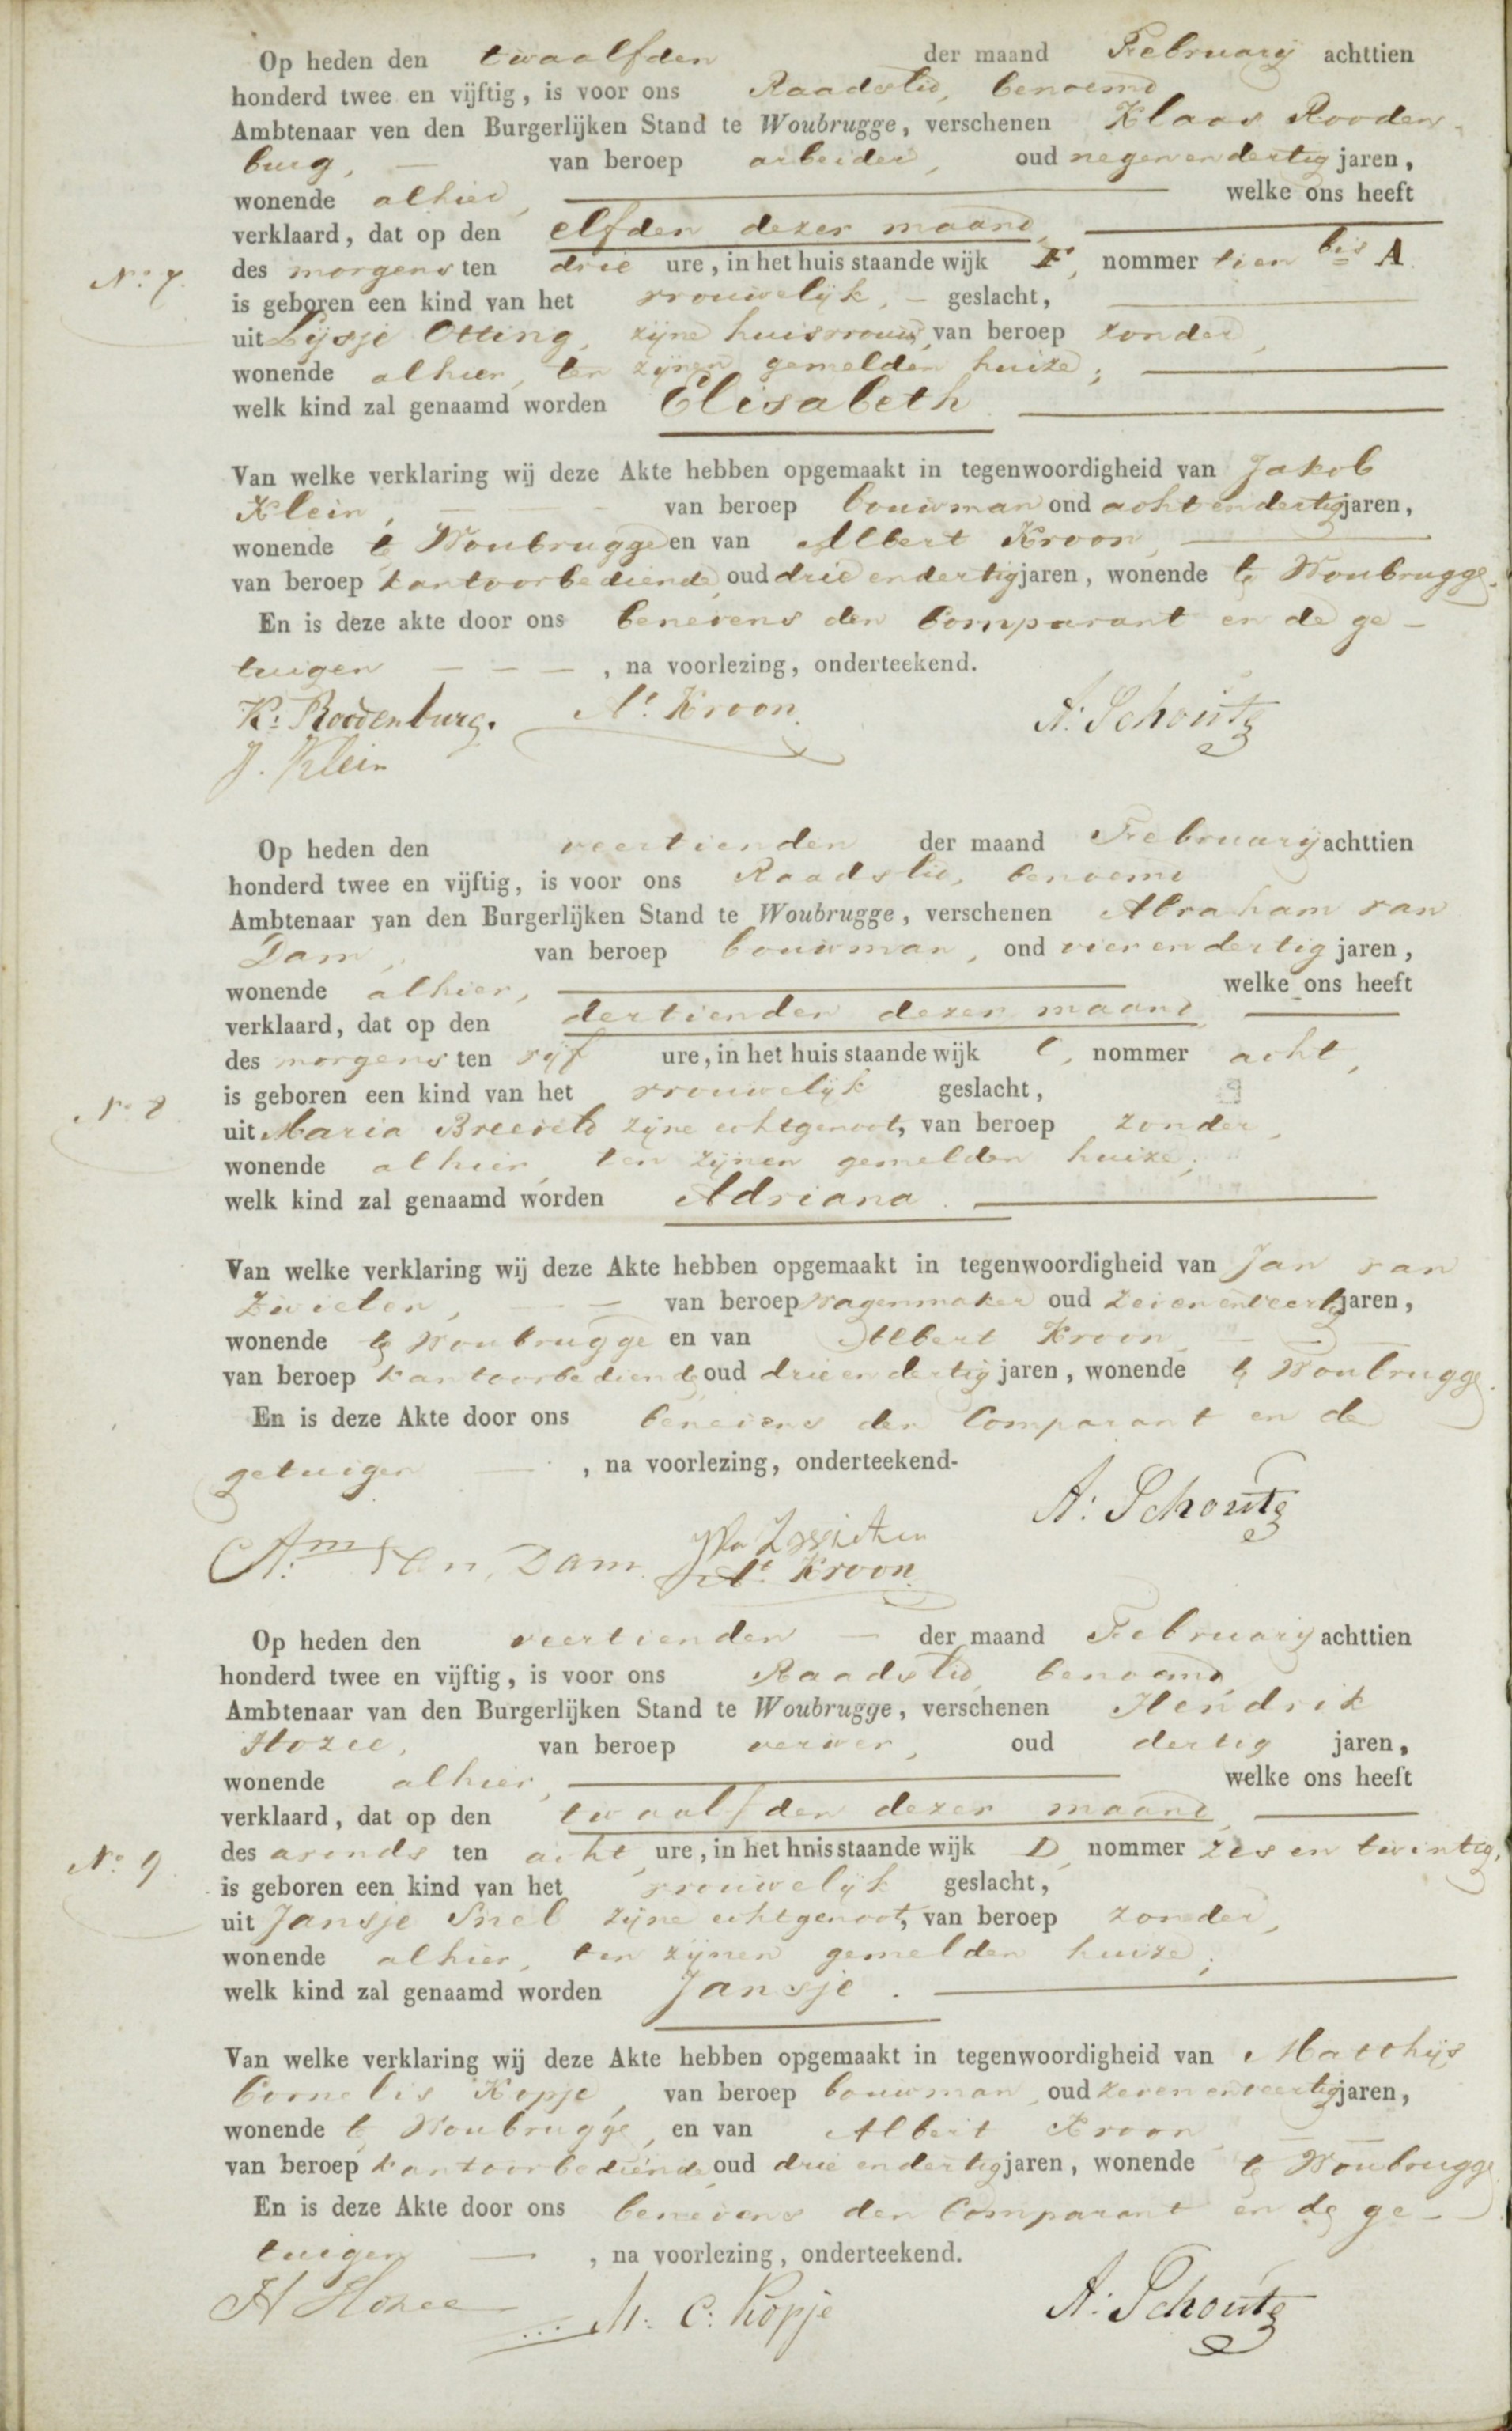 Op heden den twaalfden der maand February achttien
honderd twee en vijftig, is voor ons Raadslid, benoemd
Ambtenaar ven den Burgerlijken Stand te Woubrugge, verschenen Klaas Rooden-
burg, van beroep arbeider, oud negenendertig jaren,
wonende alhier, welke ons heeft
verklaard, dat op den elfden dezer maand,
N.o 7. des morgens ten drie ure, in het huis staande wijk F, nommer tien bis A
is geboren een kind van het vrouwelijk, geslacht,
uit Lijsje Otting, zijne huisvrouw, van beroep zonder,
wonende alhier, ten zijnen gemelden huize;
welk kind zal genaamd worden Elisabeth
Van welke verklaring wij deze Akte hebben opgemaakt in tegenwoordigheid van Jakob
Klein, van beroep bouwman ond achtendertig jaren,
wonende te Woubrugge en van Albert Kroon,
van beroep kantoorbediende, oud drie endertig jaren, wonende te Woubrugge.
En is deze akte door ons benevens den Comparant en de ge-
tuigen , na voorlezing, onderteekend.
K: Roodenburg. A.t Kroon. A: Schoutz
J. Klein
Op heden den veertienden der maand February achttien
honderd twee en vijftig, is voor ons Raadslid, benoemd
Ambtenaar van den Burgerlijken Stand te Woubrugge, verschenen Abraham van
Dam, van beroep bouwman, ond vier en dertig jaren,
wonende alhier, welke ons heeft
verklaard, dat op den dertienden dezer maand,
des morgens ten vijf ure, in het huis staande wijk C, nommer acht,
N.o 8 is geboren een kind van het vrouwelijk geslacht,
uit Maria Breeveld zijne echtgenoot, van beroep zonder,
wonende alhier, ten zijnen gemelden huize;
welk kind zal genaamd worden Adriana.
Van welke verklaring wij deze Akte hebben opgemaakt in tegenwoordigheid van Jan van
Zwieten, van beroep wagenmaker oud zevenenveertig jaren,
wonende te Woubrugge en van Albert Kroon
van beroep kantoorbediende, oud drieendertig jaren, wonende te Woubrugge.
En is deze Akte door ons benevens den Comparant en de
getuigen , na voorlezing, onderteekend-
A: Schoutz
A:m van Dam. Zwieten
A.t Kroon.
Op heden den veertienden der maand February achttien
honderd twee en vijftig, is voor ons Raadslid benoemd,
Ambtenaar van den Burgerlijken Stand te Woubrugge, verschenen Hendrik
Hozee, van beroep verwer, oud dertig jaren,
wonende alhier, welke ons heeft
verklaard, dat op den twaalfden dezer maand,
N.o 9 des avonds ten acht ure, in het hnis staande wijk D, nommer zes en twintig,
is geboren een kind van het vrouwelijk geslacht,
uit Jansje Snel zijne echtgenoot, van beroep zonder,
wonende alhier, ten zijnen gemelden huize;
welk kind zal genaamd worden Jansje.
Van welke verklaring wij deze Akte hebben opgemaakt in tegenwoordigheid van Matthijs
Cornelis Kopje, van beroep bouwman, oud zevenenveertig jaren,
wonende te Woubrugge, en van Albert Kroon,
van beroep kantoorbediende, oud drie endertig jaren, wonende te Woubrugge
En is deze Akte door ons benevens den Comparant en de ge-
tuigen , na voorlezing, onderteekend.
H Hozee M: C: Kopje A: Schoutz